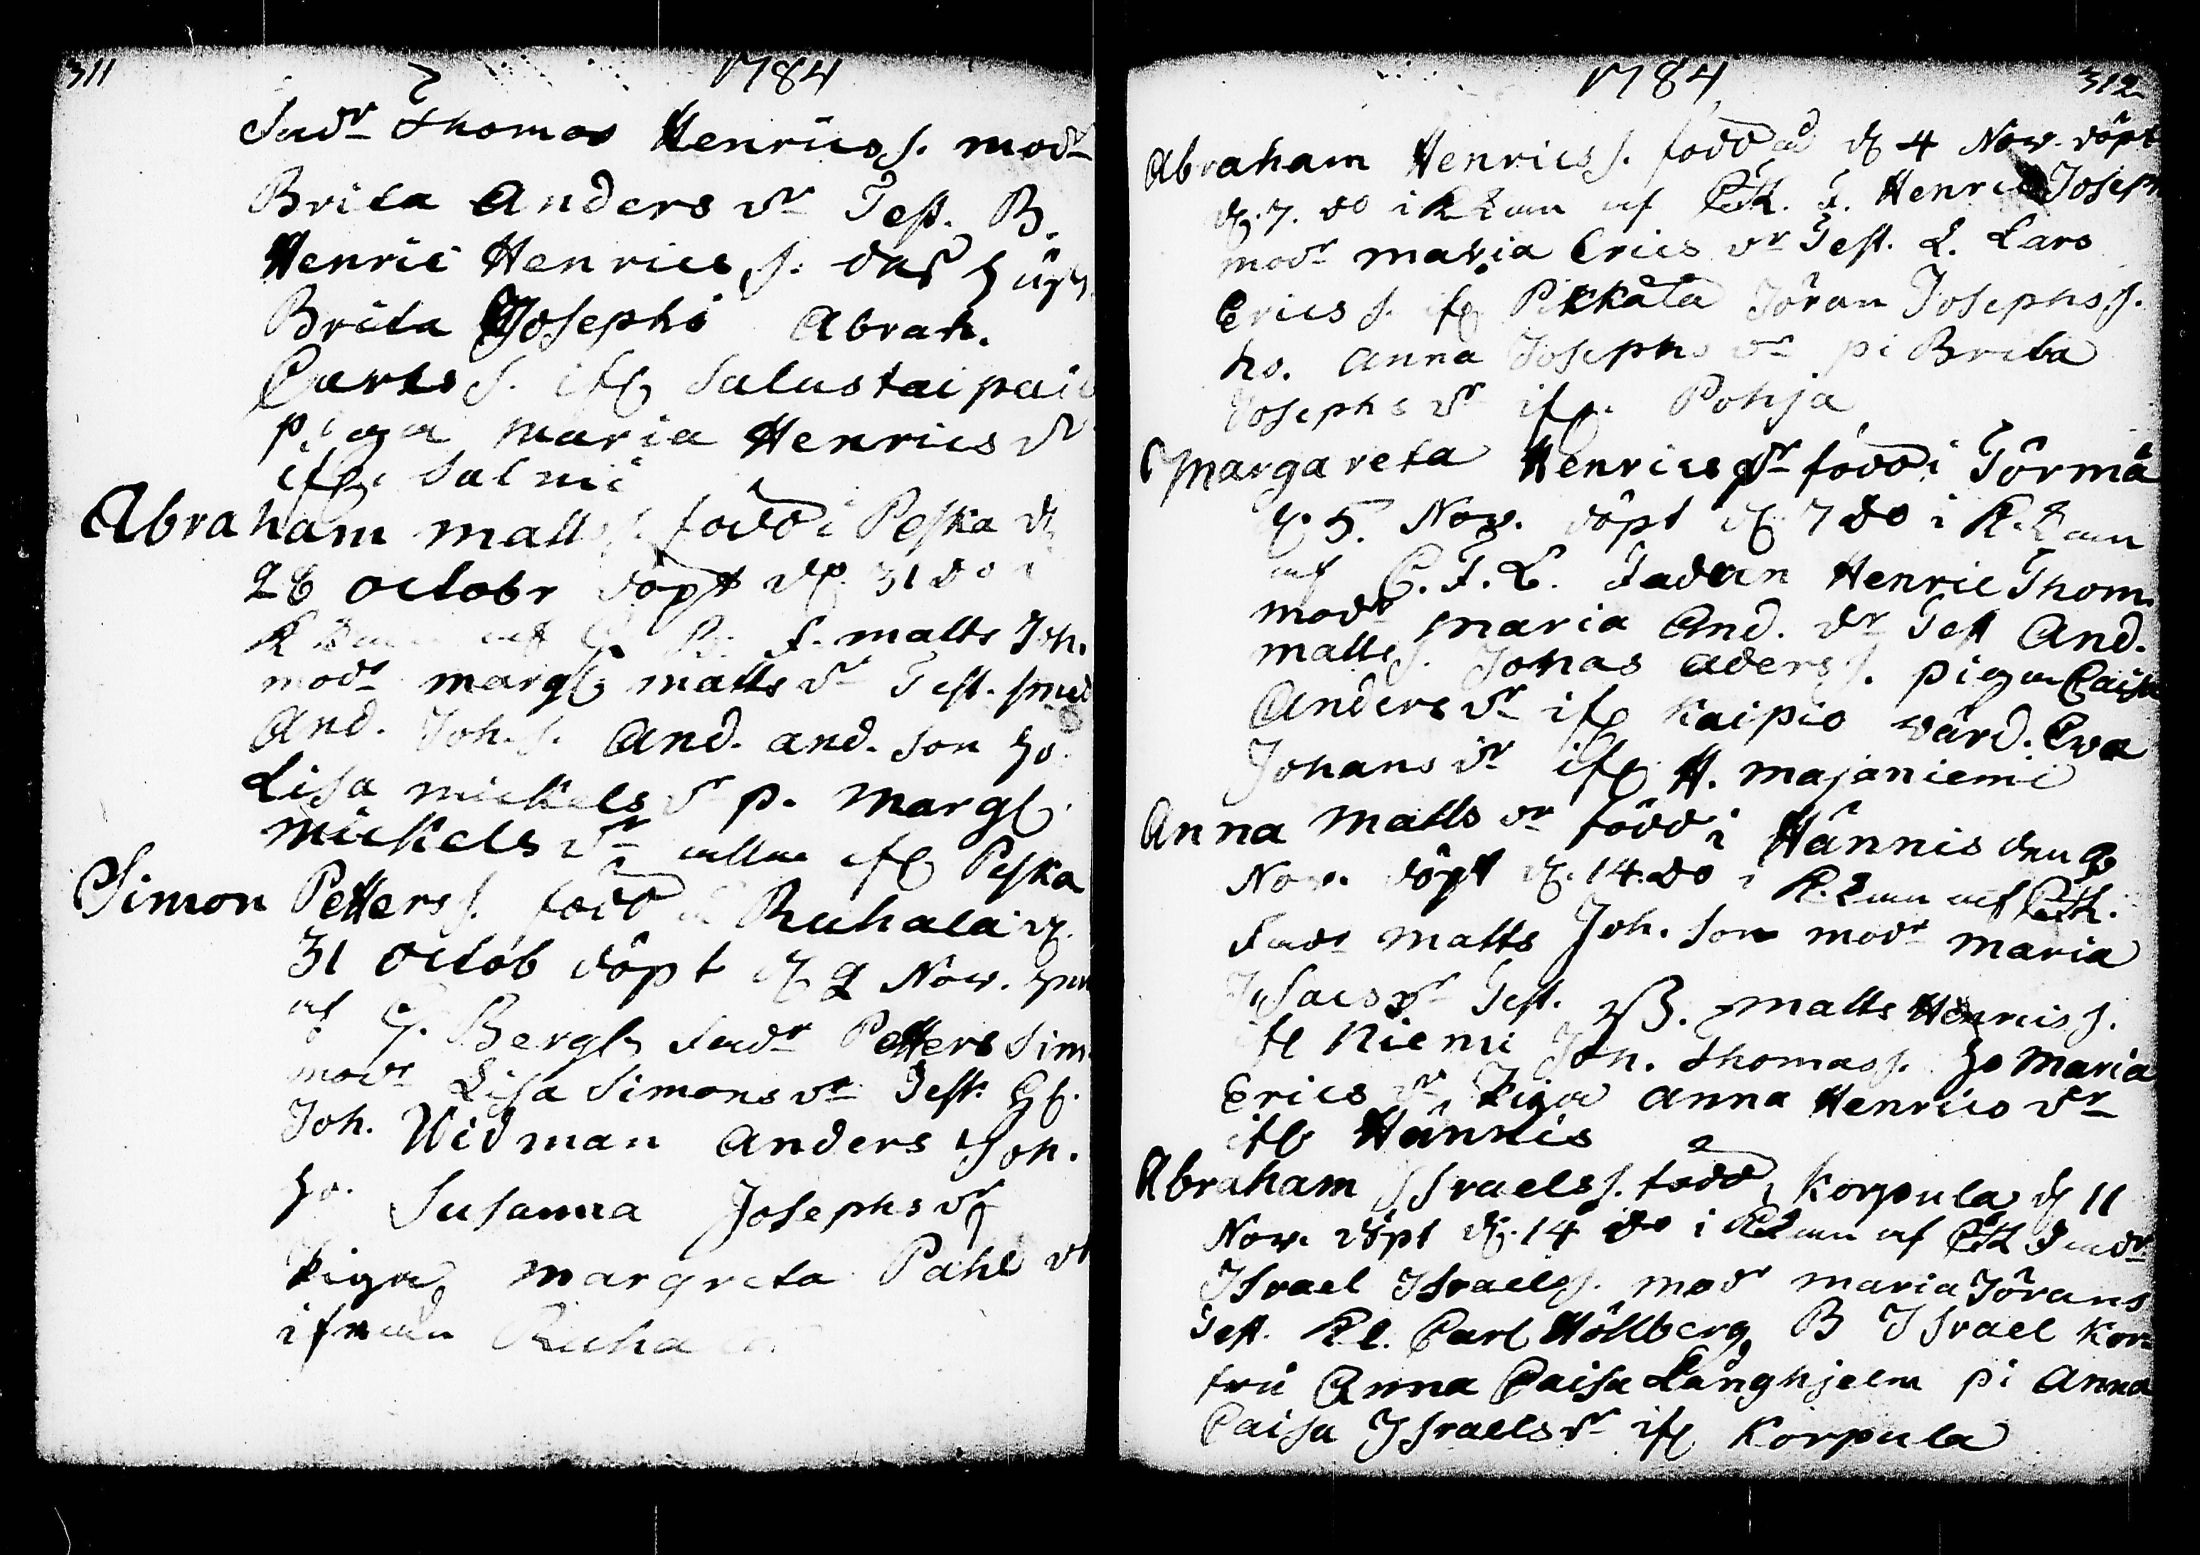 311
1784
Fadr Thomas Henrics s. modr
Brita Anders dr Test. B.
Henric Henrics s. dess
Brita Josephs Abrah.
Carls s. ifr Salustaipal
piga Maria Henrics dr
ifr. Salmi
Abraham Matts s. född i Peska d
26 octobr döpt d. 31 do i
af F. Matts Joh.
modr Margt Matts dr Test. smed
And. Joh. s. And. And. son ho.
Lisa Mickels dr p. Margt
Mickels dr alla ifr Peska
Simon Petters s. född i Ruhala d.
31 octob döpt d. 2 Nov.
af G. Bergh Fadr Petters Sim
modr Lisa Simons dr Test.
Joh. Widman Anders Joh.
ho. Susanna Josephs dr
Piga Margreta Pahl dr
ifrån Ruha
1784
312
Abraham Henrics s. född d. 4 Nov. döpt
d. 7. do i af F. Henric Joseph
modr Maria Erics dr Test. L. Lars
Erics s. ifr Pikkala Jöran Josephs s.
ho. Anna Josephs dr pi Brita
Josephs dr ifr. Pohja
Margareta Henrics dr född i Törmä
d. 5. Nov. döpt d. 7 do i
af C. F. L. Fadren Henric Thom.
modr Maria And. dr Test And.
Matts s. Jonas Aders s. piga Caisa
Anders dr ifr Kaipio värd. Eva
Johans dr ifr H. Majaniemi
Anna Matts dr född i Hännis den 9
Nov. döpt d. 14. do i af
Fadr Matts Joh. son modr Maria
Isacs dr Test. B. Matts Henrics s.
ifr Niemi Joh. Thomas s. ho Maria
Erics dr Piga Anna Henrics dr
ifr Hännis
Abraham Israels s. född i Korpula d 11
Nov. döpt d. 14 do i af Fadr
Israel Israels s. modr Maria Jörans
Test. Kl. Carl Höllberg B Israel Kor-
fru Anna Caisa Långhjelm pi Anna
Caisa Israels dr ifr Korpula